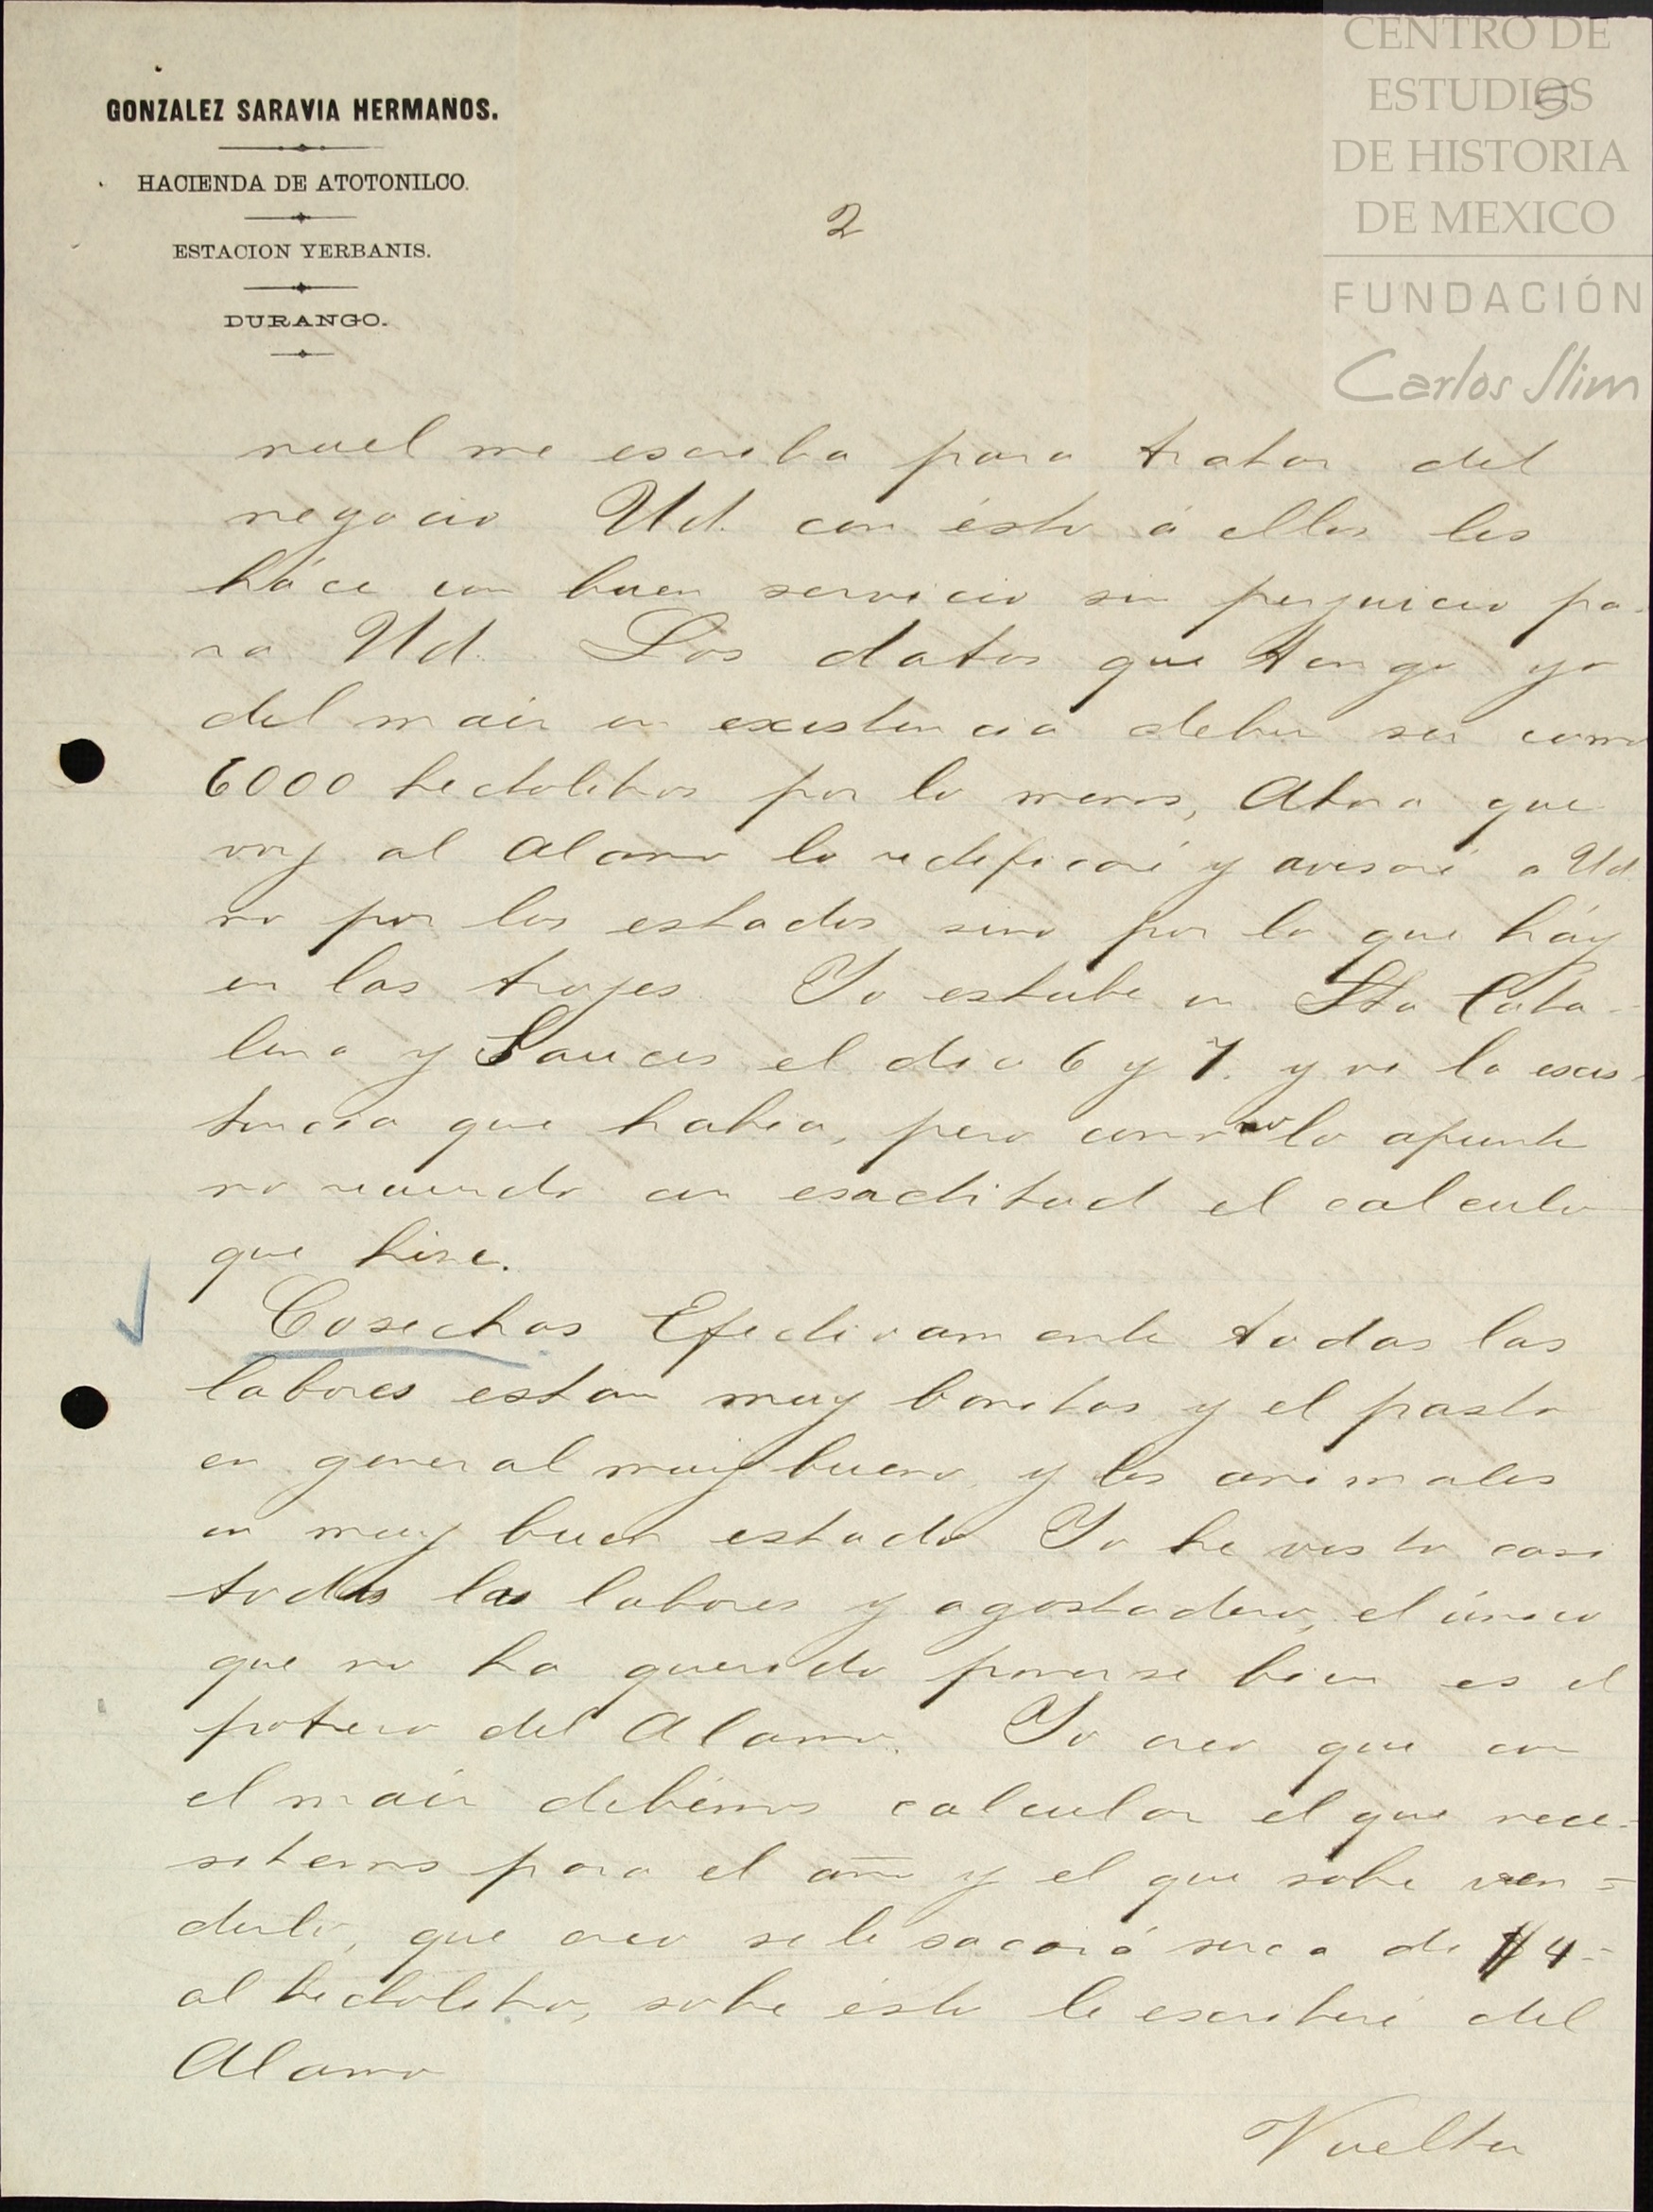 CENTRO DE
ESTUDIOS
DE HISTORIA
DE MEXICO
FUNDACIÓN
Carlos Slim
5
GONZALEZ SARAVIA HERMANOS.
HACIENDA DE ATOTONILCO.
ESTACION YERBANIS.
DURANGO.
2
nuel me escriba para tratar del
negocio Ud. con ésto á ellos les
háce un buen servicio sin perjuicio pa-
ra Ud. Los datos que tengo yo
del maiz en existencia deben ser como
6000 hectolitros por lo menos, Ahora que
voy al Alamo lo redificaré y avisaré a Ud.
no por los estados sino por lo que háy
en las trojes. Yo estube en Sta Cata-
lina y Sauces el dia 6 y 7. y vi la exis-
tencia que habia, pero como no lo apunte
no recuerdo con esactitud el calculo
que hise.
Cosechas Efectivamente todas las
labores estan muy bonitas y el pasto
en general muy bueno y los animales
en muy buen estado Yo he visto casi
todas las labores y agostadero, el único
que no ha querido ponerse bien es el
potrero del Alamo. Yo creo que con
el maiz debémos calcular el que nece-
sitemos para el año y el que sobre ven=
derlo, que creo se le sacará serca de $4=
al hectolitro, sobre ésto le escribiré del
Alamo
Vuelta